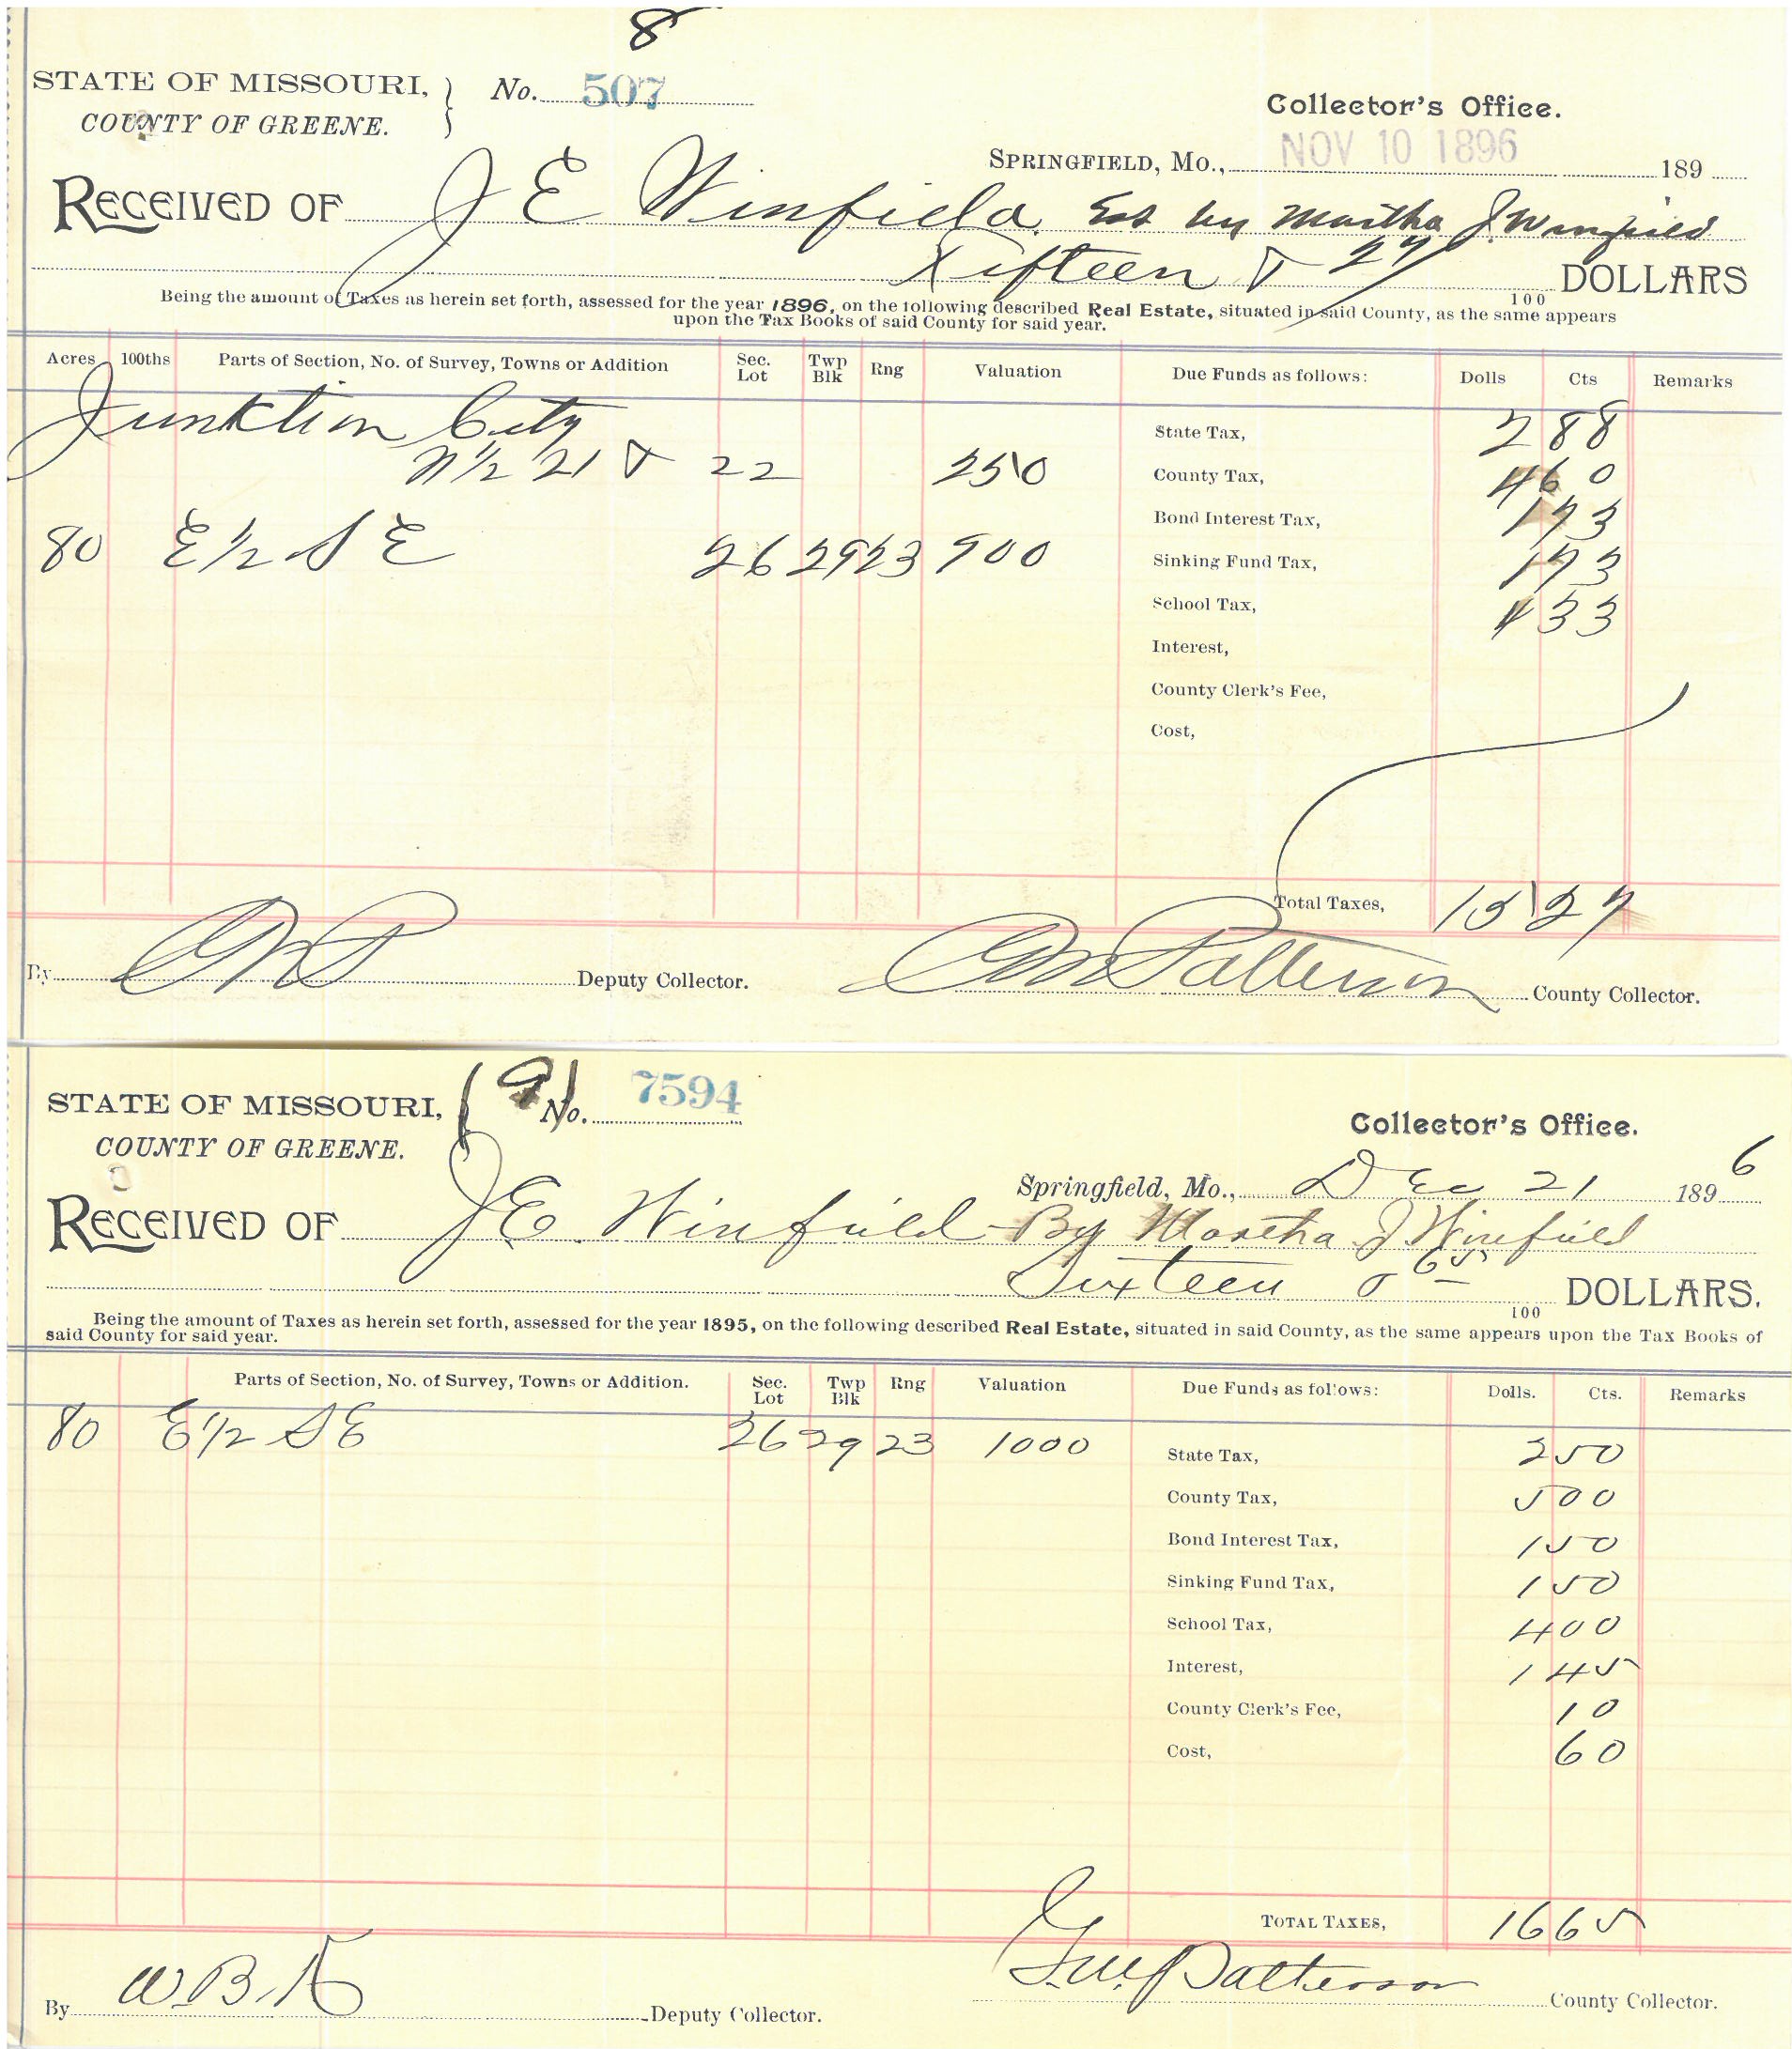 8
STATE OF MISSOURI, } No. 507
COUNTY OF GREENE.
Collector's Office.
SPRINGFIELD, Mo., NOV 10 1896 189
RECEIVED OF J E Winfield Est by Martha J. Winfield
Fifteen & 27/100 DOLLARS
Being the amount of Taxes as herein set forth, assessed for the year 1896, on the following described Real Estate, situated in said County, as the same appears
upon the Tax Books of said County for said year.
Acres 100ths Parts of Section, No. of Survey, Towns or Addition Sec. Lot Twp Blk Rng Valuation Due Funds as follows: Dolls Cts Remarks
Junktion City
State Tax, 2 88
N 1/2 21 & 22 250 County Tax, 4 60
Bond Interest Tax, 1 73
80 E 1/2 S E 26 29 23 900 Sinking Fund Tax, 1 73
School Tax, 4 33
Interest,
County Clerk's Fee,
Cost,
Total Taxes, 15 27
By Deputy Collector. Patterson County Collector.
9
STATE OF MISSOURI, No. 7594
COUNTY OF GREENE.
Collector's Office.
Springfield, Mo., Dec 21 1896
RECEIVED OF J E. Winfield By Martha J Winfield
Sixteen & 65/100 DOLLARS.
Being the amount of Taxes as herein set forth, assessed for the year 1895, on the following described Real Estate, situated in said County, as the same appears upon the Tax Books of
said County for said year.
Parts of Section, No. of Survey, Towns or Addition. Sec. Lot Twp Blk Rng Valuation Due Funds as follows: Dolls. Cts. Remarks
80 E 1/2 S E 26 29 23 1000 State Tax, 2 50
County Tax, 5 00
Bond Interest Tax, 1 50
Sinking Fund Tax, 1 50
School Tax, 4 00
Interest, 1 45
County Clerk's Fee, 10
Cost, 60
TOTAL TAXES, 16 65
By W. B. Deputy Collector. Patterson County Collector.